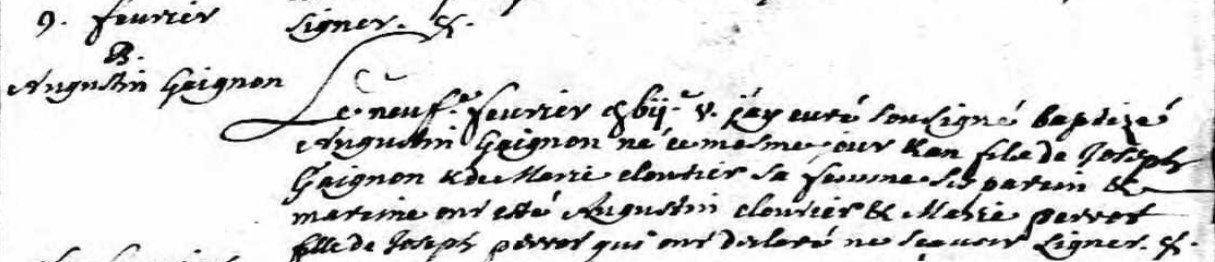 9. feurier
signer. &.
B.
Augustin Gaignon
Le neuf.e feurier &bij.c v. jay curé soussigné baptizé
Augustin Gaignon né ce mesme jour &an fils de Joseph
Gaignon & de Marie cloutier sa femme ses parein &
mareine ont esté Augustin cloutier & Marie perrot
fille de Joseph perrot qui ont declaré ne sçavoir signer. &.